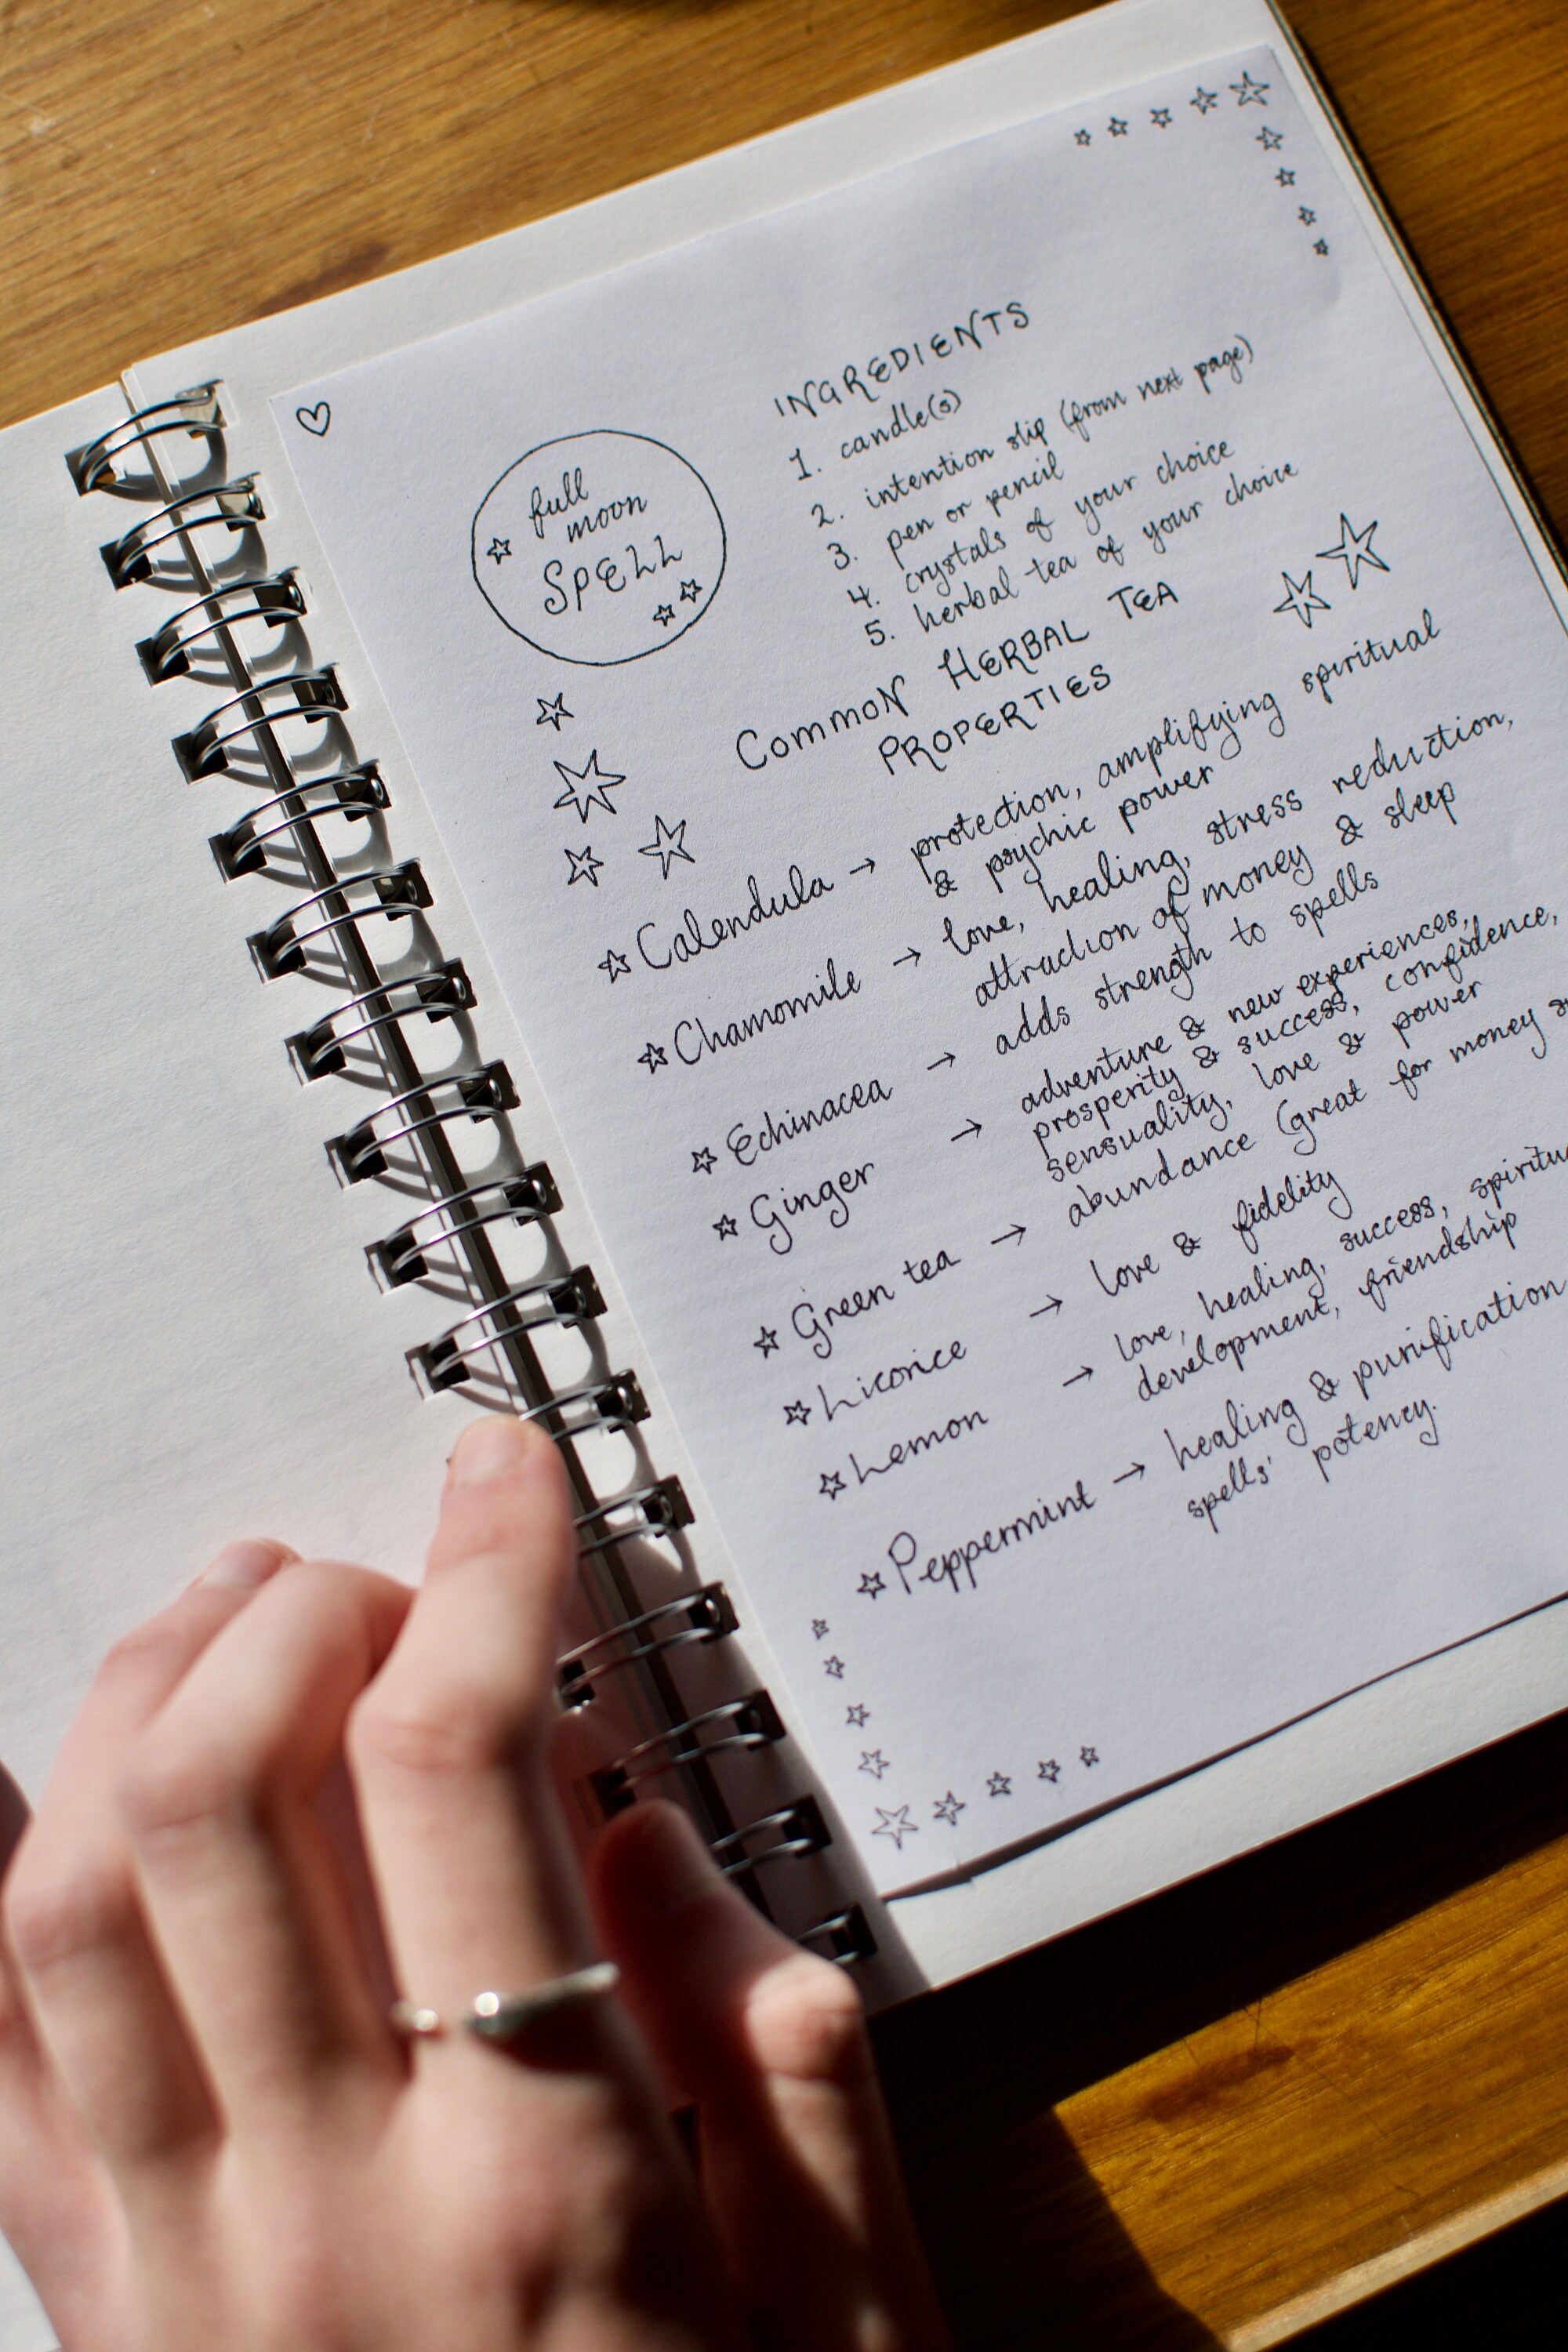 full
moon
SPELL
INGREDIENTS
1. candle(s)
2. intention slip (from next page)
3. pen or pencil
4. crystals of your choice
5. herbal tea of your choice
COMMON HERBAL TEA
PROPERTIES
Calendula → protection, amplifying spiritual
& psychic power
Chamomile → love, healing, stress reduction,
attraction of money & sleep
Echinacea → adds strength to spells
Ginger → adventure & new experiences,
prosperity & success, confidence,
sensuality, love & power
Green tea → abundance (great for money
Licorice → love & fidelity
Lemon → love, healing, success,
development, friendship
Peppermint → healing & purification
spells' potency.